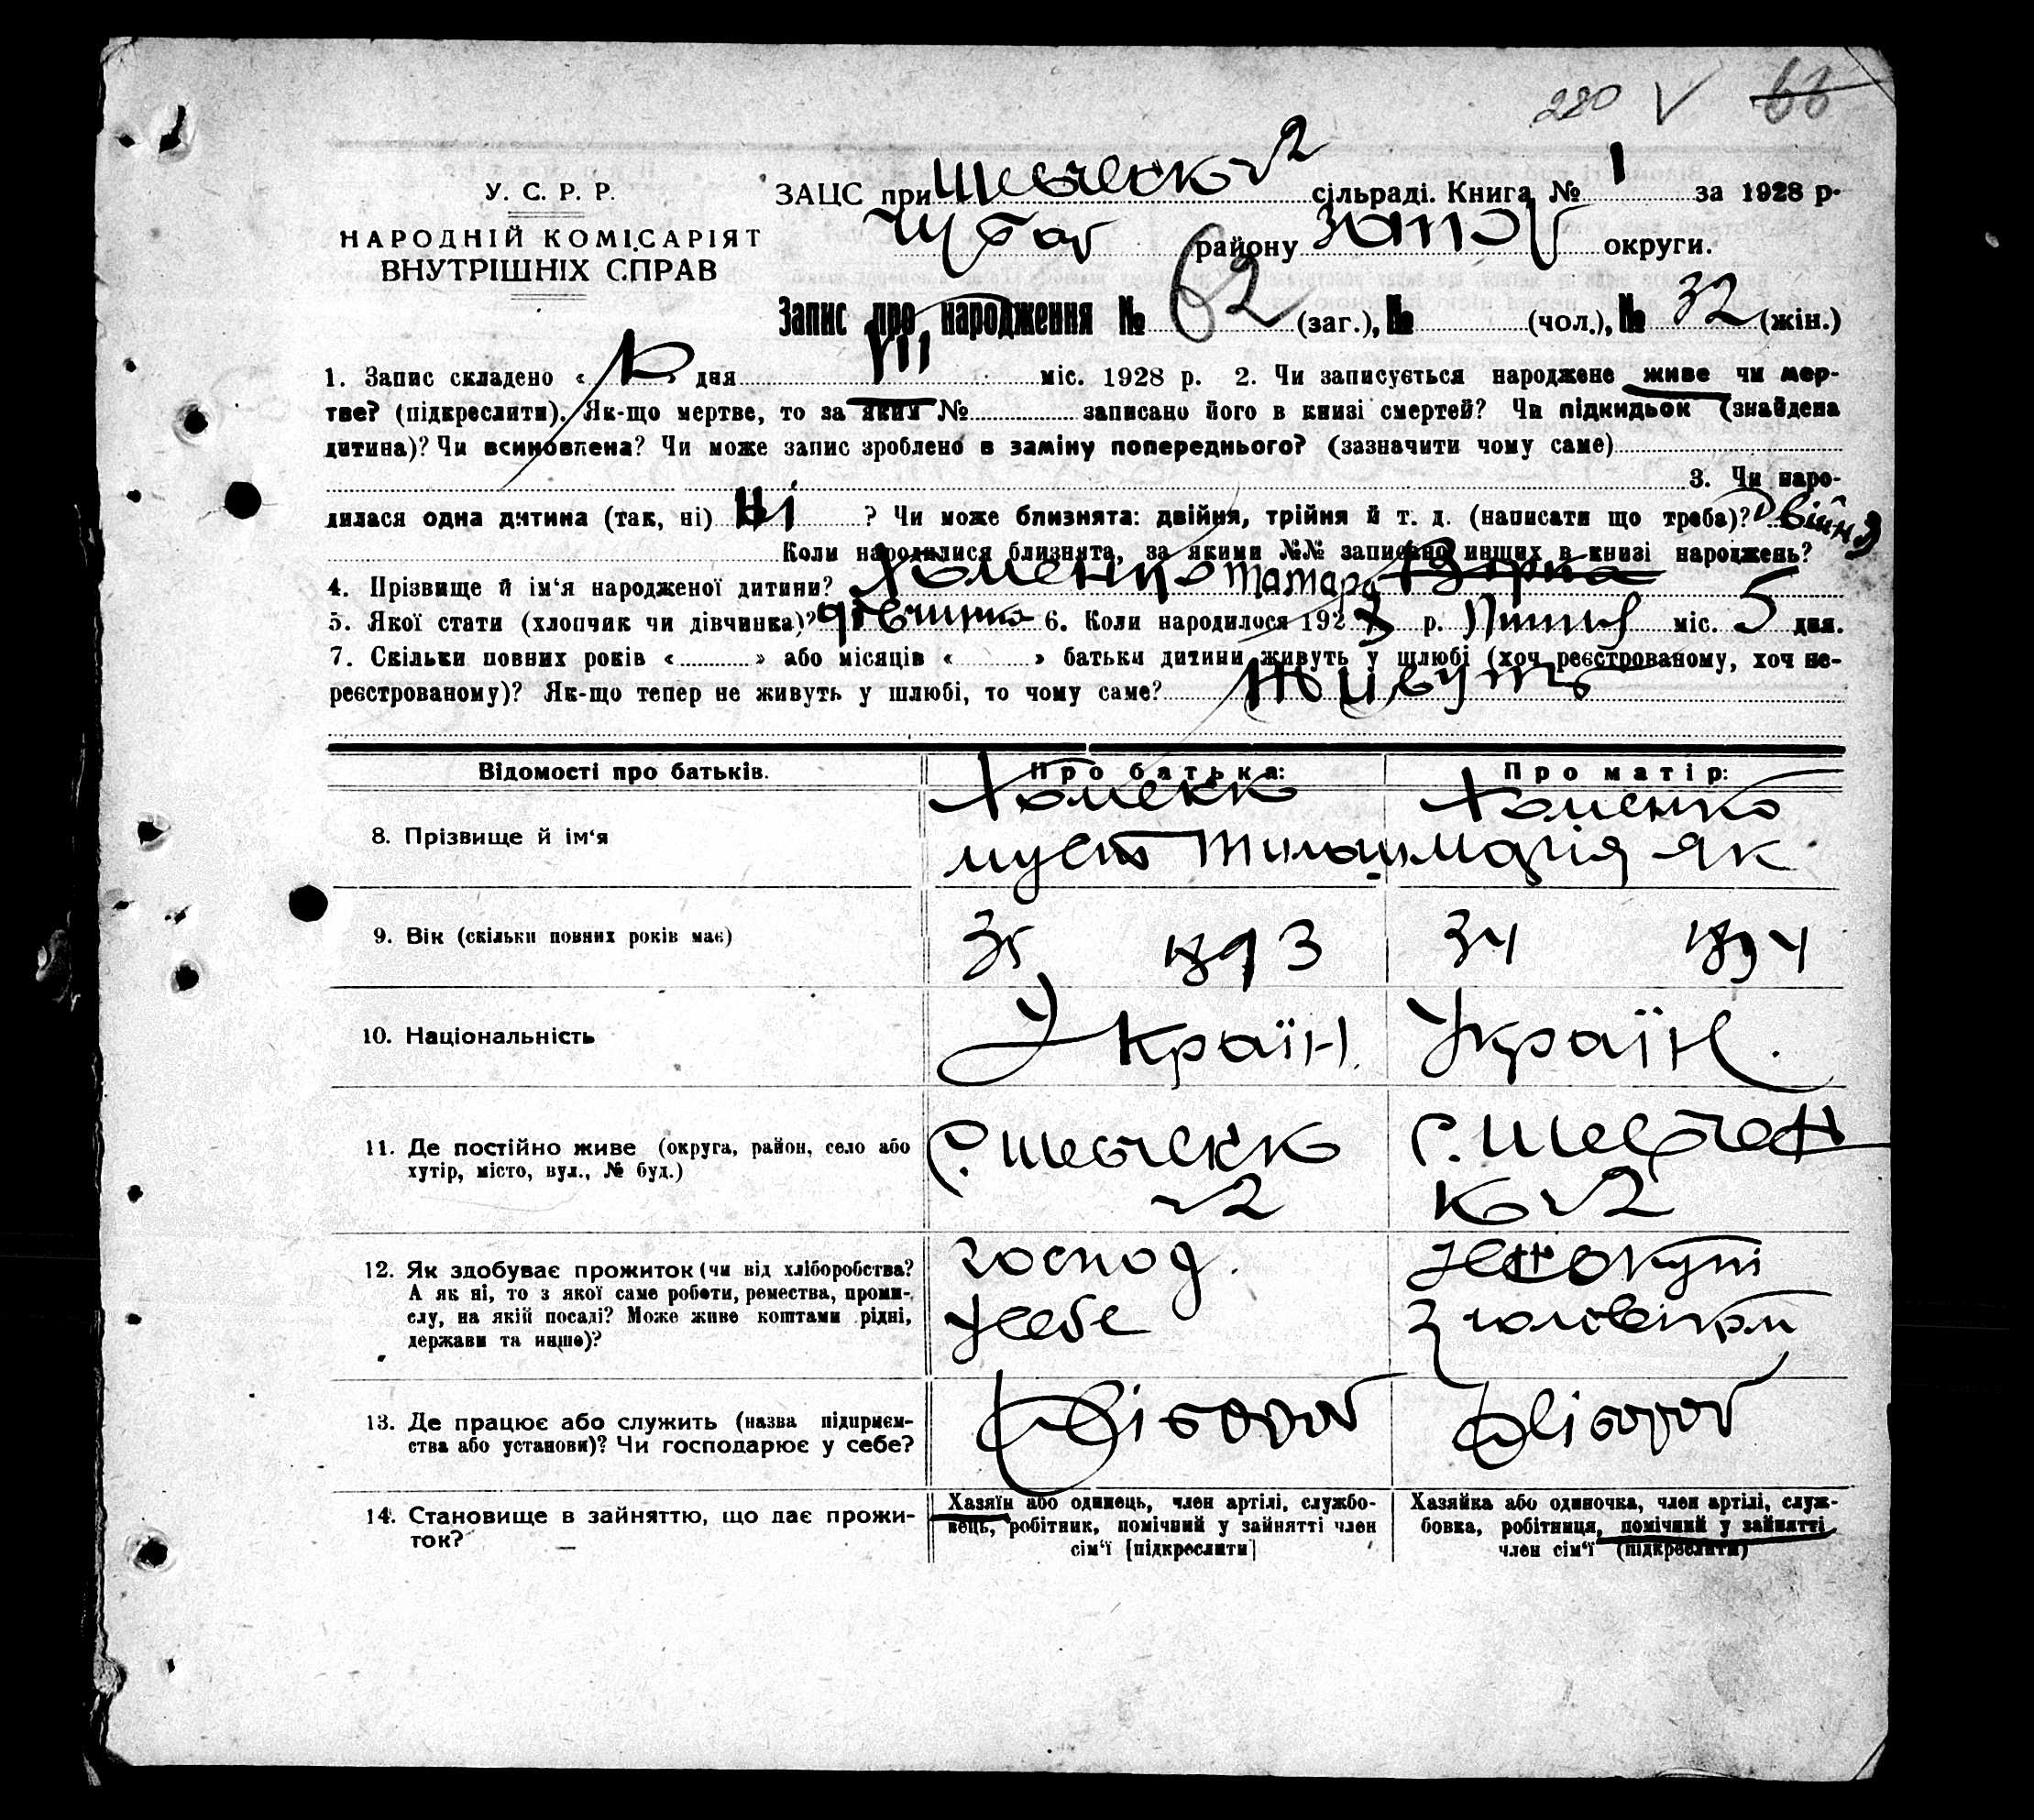 280 V 66
У. С. Р. Р.
НАРОДНІЙ КОМІСАРІЯТ
ВНУТРІШНІХ СПРАВ
ЗАЦС при Шевченк 2 сільраді. Книга № 1 за 1928 р.
Чубар району Запор округи.
Запис про народження № 62 (заг.), № (чол.), № 32 (жін.)
1. Запис складено « » дня VII міс. 1928 р. 2. Чи записується народжене живе чи мер-
тве? (підкреслити). Як-що мертве, то за яким № записано його в книзі смертей? Чи підкидьок (знайдена
дитина)? Чи всиновлена? Чи може запис зроблено в заміну попереднього? (зазначити чому саме)
3. Чи наро-
дилася одна дитина (так, ні) Ні ? Чи може близнята: двійня, трійня й т. д. (написати що треба)? Двійня
Коли народилися близнята, за якими №№ записано инших в книзі народжень?
4. Прізвище й ім'я народженої дитини? Хоменко Тамара Вірка
5. Якої стати (хлопчик чи дівчинка)? дівчинка 6. Коли народилося 1928 р. Липня міс. 5 дня.
7. Скільки повних років « » або місяців « » батьки дитини живуть у шлюбі (хоч реєстрованому, хоч не-
реєстрованому)? Як-що тепер не живуть у шлюбі, то чому саме? Живуть
Відомості про батьків. Про батька: Про матір:
8. Прізвище й ім'я
Хоменк Хоменко
Марія Як
9. Вік (скільки повних років має) 35 1893 34 1894
10. Національність Україн. Україн.
11. Де постійно живе (округа, район, село або
хутір, місто, вул., № буд.)
С. Шевченк С. Шевчен
2 к 2
12. Як здобуває прожиток (чи від хліборобства?
А як ні, то з якої саме роботи, ремества, проми-
слу, на якій посаді? Може живе коштами рідні,
держави та инше)?
господ.
у себе з чоловіком
13. Де працює або служить (назва підприєм-
ства або установи)? Чи господарює у себе?
Хлібороб Хлібороб
14. Становище в зайняттю, що дає прожи-
ток?
Хазяїн або одинець, член артілі, службо-
вець, робітник, помічний у зайнятті член
сім'ї [підкреслити]
Хазяйка або одиночка, член артілі, служ-
бовка, робітниця, помічний у зайнятті
член сім'ї (підкреслити)